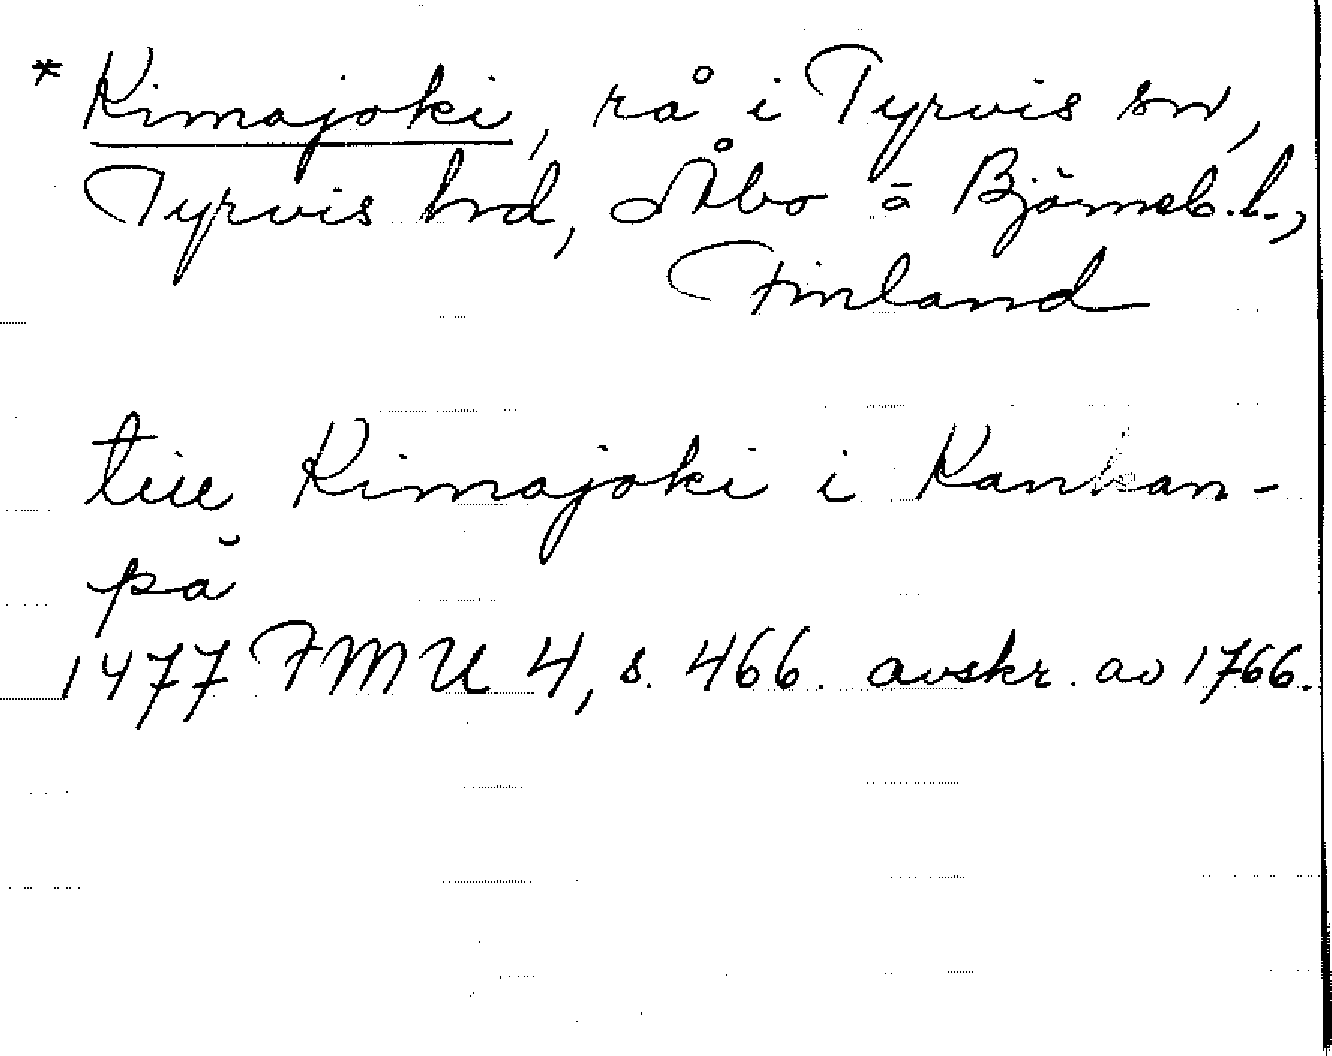 * Kimajoki, rå i Tyrvis sn,
Tyrvis hrd, Åbo o Björneb. l.,
Finland
till Kimajoki i Kankan-
pä
1477 FMU 4, s. 466. avskr. av 1766.